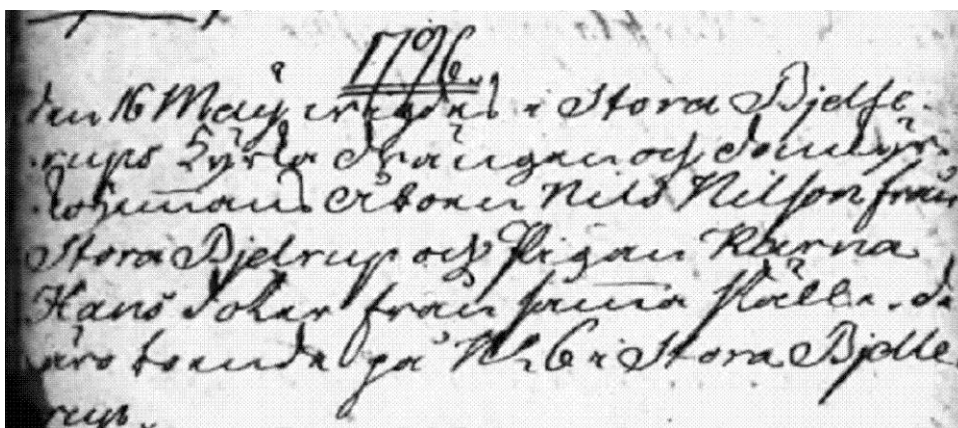 1796.
den 16 May wigdes i Stora Bjelle-
rups Kyrka Drängen och
Åboen Nils Nilson från
Stora Bjelrup och Pigan Karna
Hans Doter från sama ställe. de
äro boende på No 6 i Stora Bjelle
rup.